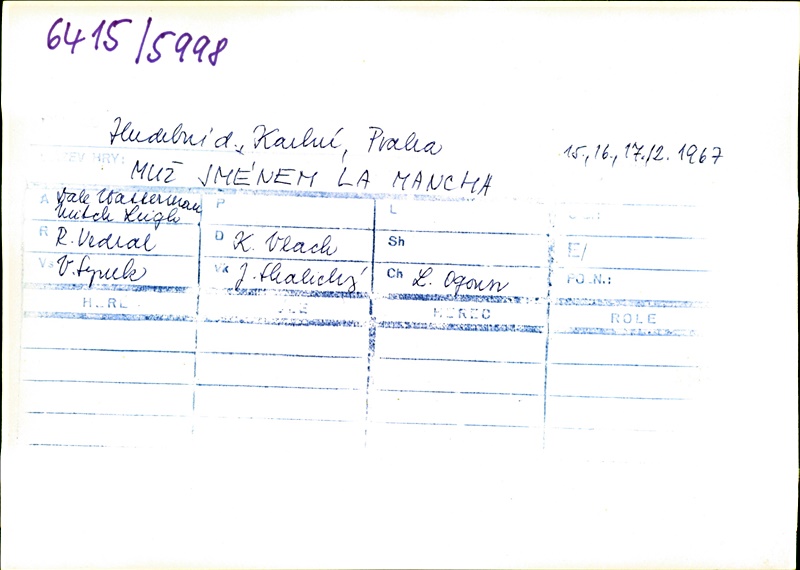 6415/5998
Hudební d., Karlín, Praha
15., 16., 17./2. 1967
HRY:
MUŽ JMÉNEM LA MANCHA
A Dale Wasserman
Mitch Leigh
P
L
R R. Vedral
D K. Vlach
Sh
E/
V. Synek
Vk J. Skalický
Ch L. Ogoun
PO.N.:
ROLE